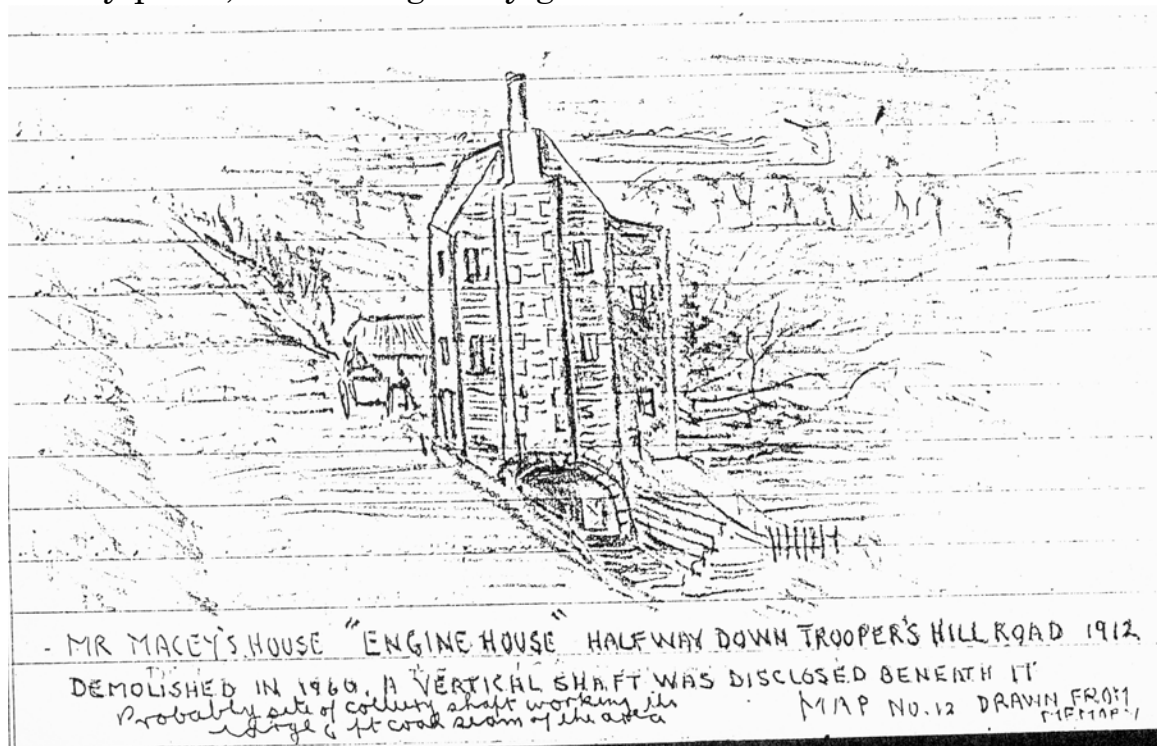 - MR MACEY'S HOUSE "ENGINE HOUSE" HALFWAY DOWN TROOPER'S HILL ROAD 1912
DEMOLISHED IN 1960. A VERTICAL SHAFT WAS DISCLOSED BENEATH IT
Probably site of colliery shaft working the
large ft coal seam of the area
MAP NO. 12 DRAWN FROM
MEMORY